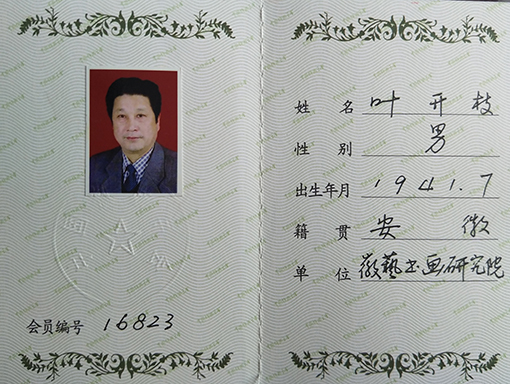 会员编号 16823
姓名 叶开枝
性别 男
出生年月 1941.7
籍贯 安徽
单位 徽艺书画研究院